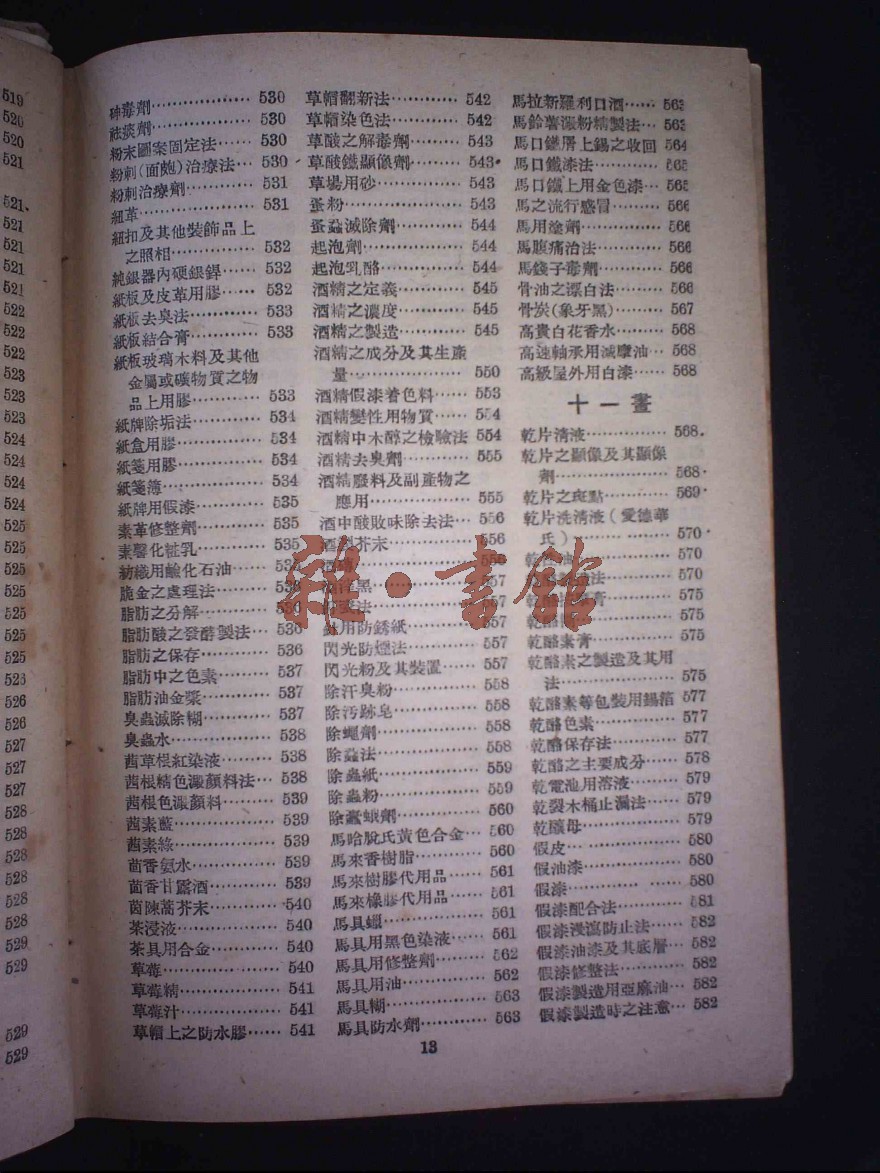 519
520
520
521
521.
521
521
521
521
522
522
522
523
523
523
524
524
524
524
525
525
525
525
525
525
525
526
526
527
527
527
528
528
528
528
528
529
529
529
529
砷毒劑 530
祛痰劑 530
粉末圖案固定法 530
粉刺(面皰)治療法 530
粉刺治療劑 531
紐革 531
紐扣及其他裝飾品上
之照相 532
純銀器內硬銀銲 532
紙板及皮革用膠 532
紙板去臭法 533
紙板結合膏 533
紙板玻璃木料及其他
金屬或礦物質之物
品上用膠 533
紙牌除垢法 534
紙盒用膠 534
紙箋用膠 534
紙箋簿 534
紙牌用假漆 535
素革修整劑 535
素馨化粧乳 535
紡織用鹼化石油 535
脆金之處理法 536
脂肪之分解 536
脂肪酸之發酵製法 536
脂肪之保存 536
脂肪中之色素 537
脂肪油金漿 537
臭蟲滅除糊 537
臭蟲水 538
茜草根紅染液 538
茜根精色澱顏料法 538
茜根色澱顏料 539
茜素藍 539
茜素綠 539
茴香氨水 539
茴香甘露酒 539
茵陳蒿芥末 540
茶浸液 540
茶具用合金 540
草莓 540
草莓精 541
草莓汁 541
草帽上之防水膠 541
草帽翻新法 542
草帽染色法 542
草酸之解毒劑 543
草酸鐵顯像劑 543
草場用砂 543
蚤粉 543
蚤蝨滅除劑 544
起泡劑 544
起泡乳酪 544
酒精之定義 545
酒精之濃度 545
酒精之製造 545
酒精之成分及其生產
量 550
酒精假漆着色料 553
酒精變性用物質 554
酒精中木醇之檢驗法 554
酒精去臭劑 555
酒精廢料及副產物之
應用 555
酒中酸敗味除去法 556
芥末 556
557
557
用防銹紙 557
閃光防煙法 557
閃光粉及其裝置 557
除汗臭粉 558
除污跡皂 558
除蠅劑 558
除蝨法 558
除蟲紙 559
除蟲粉 559
除蠹蛾劑 560
馬哈脫氏黃色合金 560
馬來香樹脂 560
馬來樹膠代用品 561
馬來橡膠代用品 561
馬具蠟 561
馬具用黑色染液 561
馬具用修整劑 562
馬具用油 562
馬具糊 563
馬具防水劑 563
馬拉新羅利口酒 563
馬鈴薯澱粉精製法 563
馬口鐵屑上錫之收回 564
馬口鐵漆法 565
馬口鐵上用金色漆 565
馬之流行感冒 566
馬用塗劑 566
馬腹痛治法 566
馬錢子毒劑 566
骨油之漂白法 566
骨炭(象牙黑) 567
高貴白花香水 568
高速軸承用減摩油 568
高級屋外用白漆 568
十一畫
乾片清液 568
乾片之顯像及其顯像
劑 568
乾片之斑點 569
乾片洗清液(愛德華
氏) 570
乾性油 570
570
575
乾酪 575
乾酪素膏 575
乾酪素之製造及其用
法 575
乾酪素等包裝用錫箔 577
乾酪色素 577
乾酪保存法 577
乾酪之主要成分 578
乾電池用溶液 579
乾裂木桶止漏法 579
乾釀母 579
假皮 580
假油漆 580
假漆 580
假漆配合法 581
假漆浸瀉防止法 582
假漆油漆及其底層 582
假漆修整法 582
假漆製造用亞麻油 582
假漆製造時之注意 582
13
雜·書館